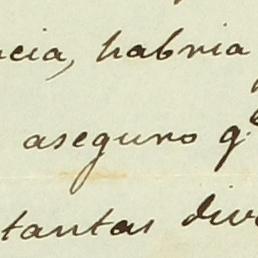 cia, habria
aseguro q.e
tantas div